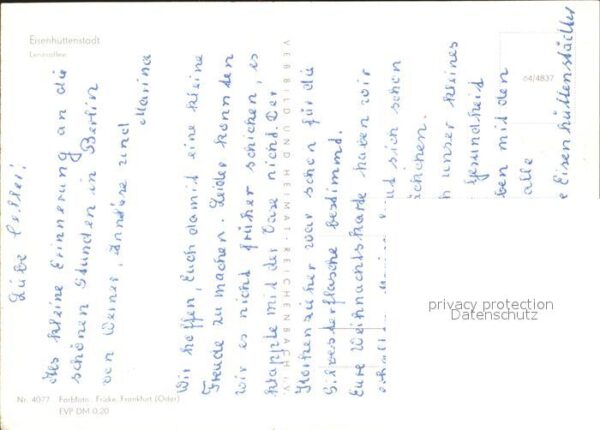 Eisenhüttenstadt
Leninallee
64/4837
Liebe Cellei!
Als kleine Erinnerung an die
schönen Stunden in Berlin
von Werner, Annliese und
Marina
Wir hoffen, Euch damit eine kleine
Freude zu machen. Leider konnten
wir es nicht früher schicken, es
klappte mit der Vase nicht. Der
war schon für die
Silvesterflasche bestimmt.
Eure Weihnachtskarte haben wir
erhalten
und sich schon
unser kleines
Gesundheit
ben mit den
alle
Eisenhüttenstädter
VEB BILD UND HEIMAT REICHENBACH i. V.
privacy protection
Datenschutz
Nr. 4077 Farbfoto: Fricke, Frankfurt (Oder)
EVP DM 0,20